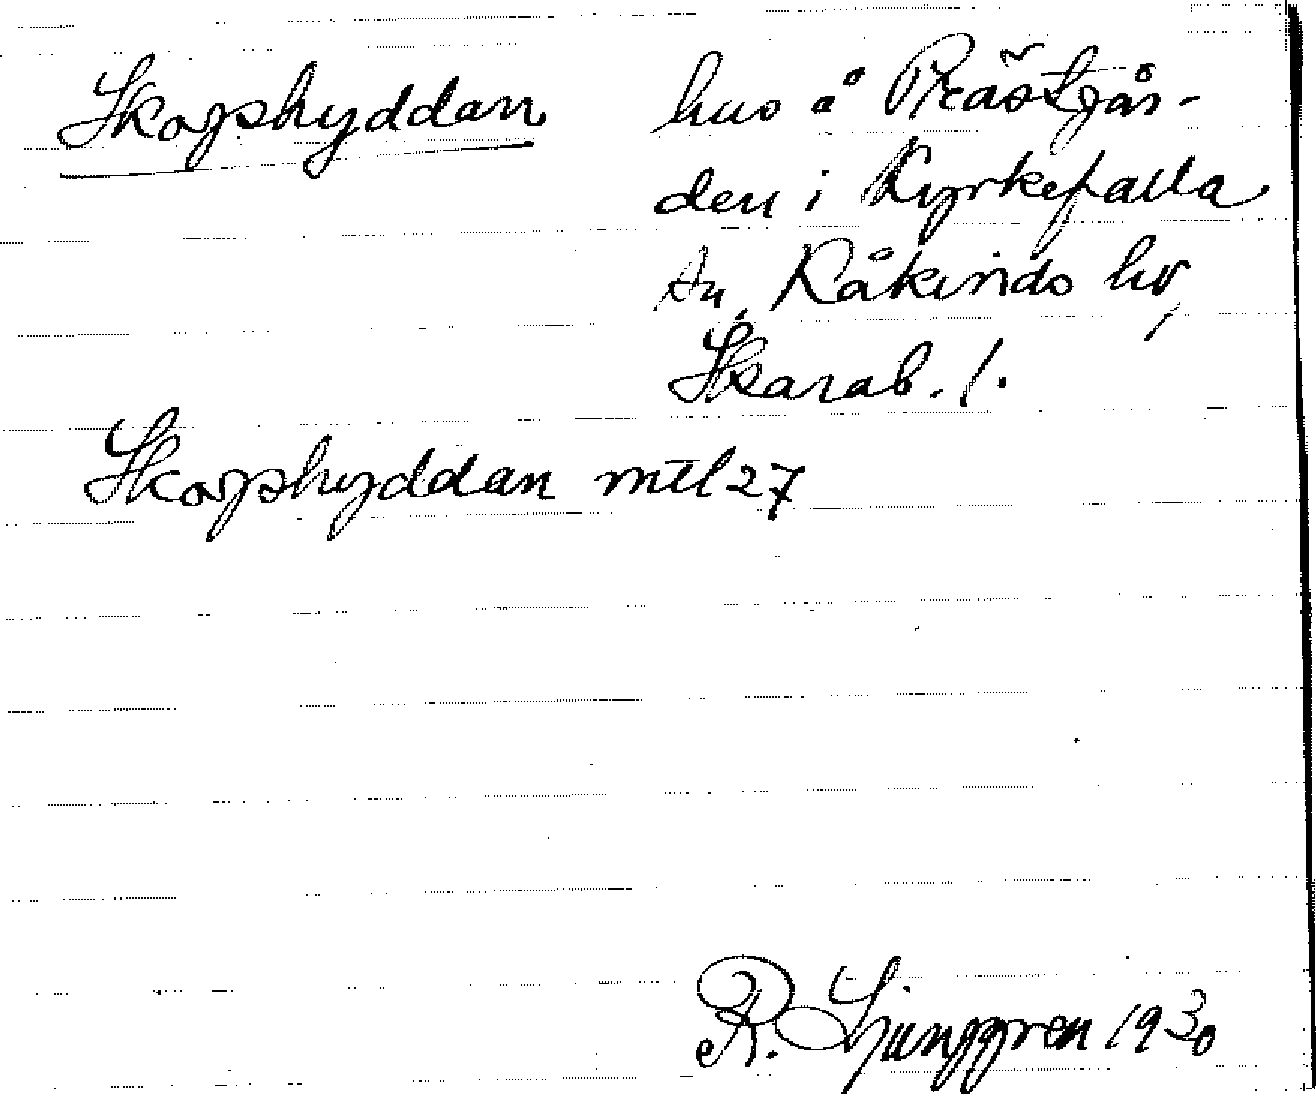 Skogshyddan
hus å Prästgår-
den i Kyrkefalla
sn, Kåkinds hd,
Skarab. l.
Skogshyddan mtl 27
R. Ljunggren 1930